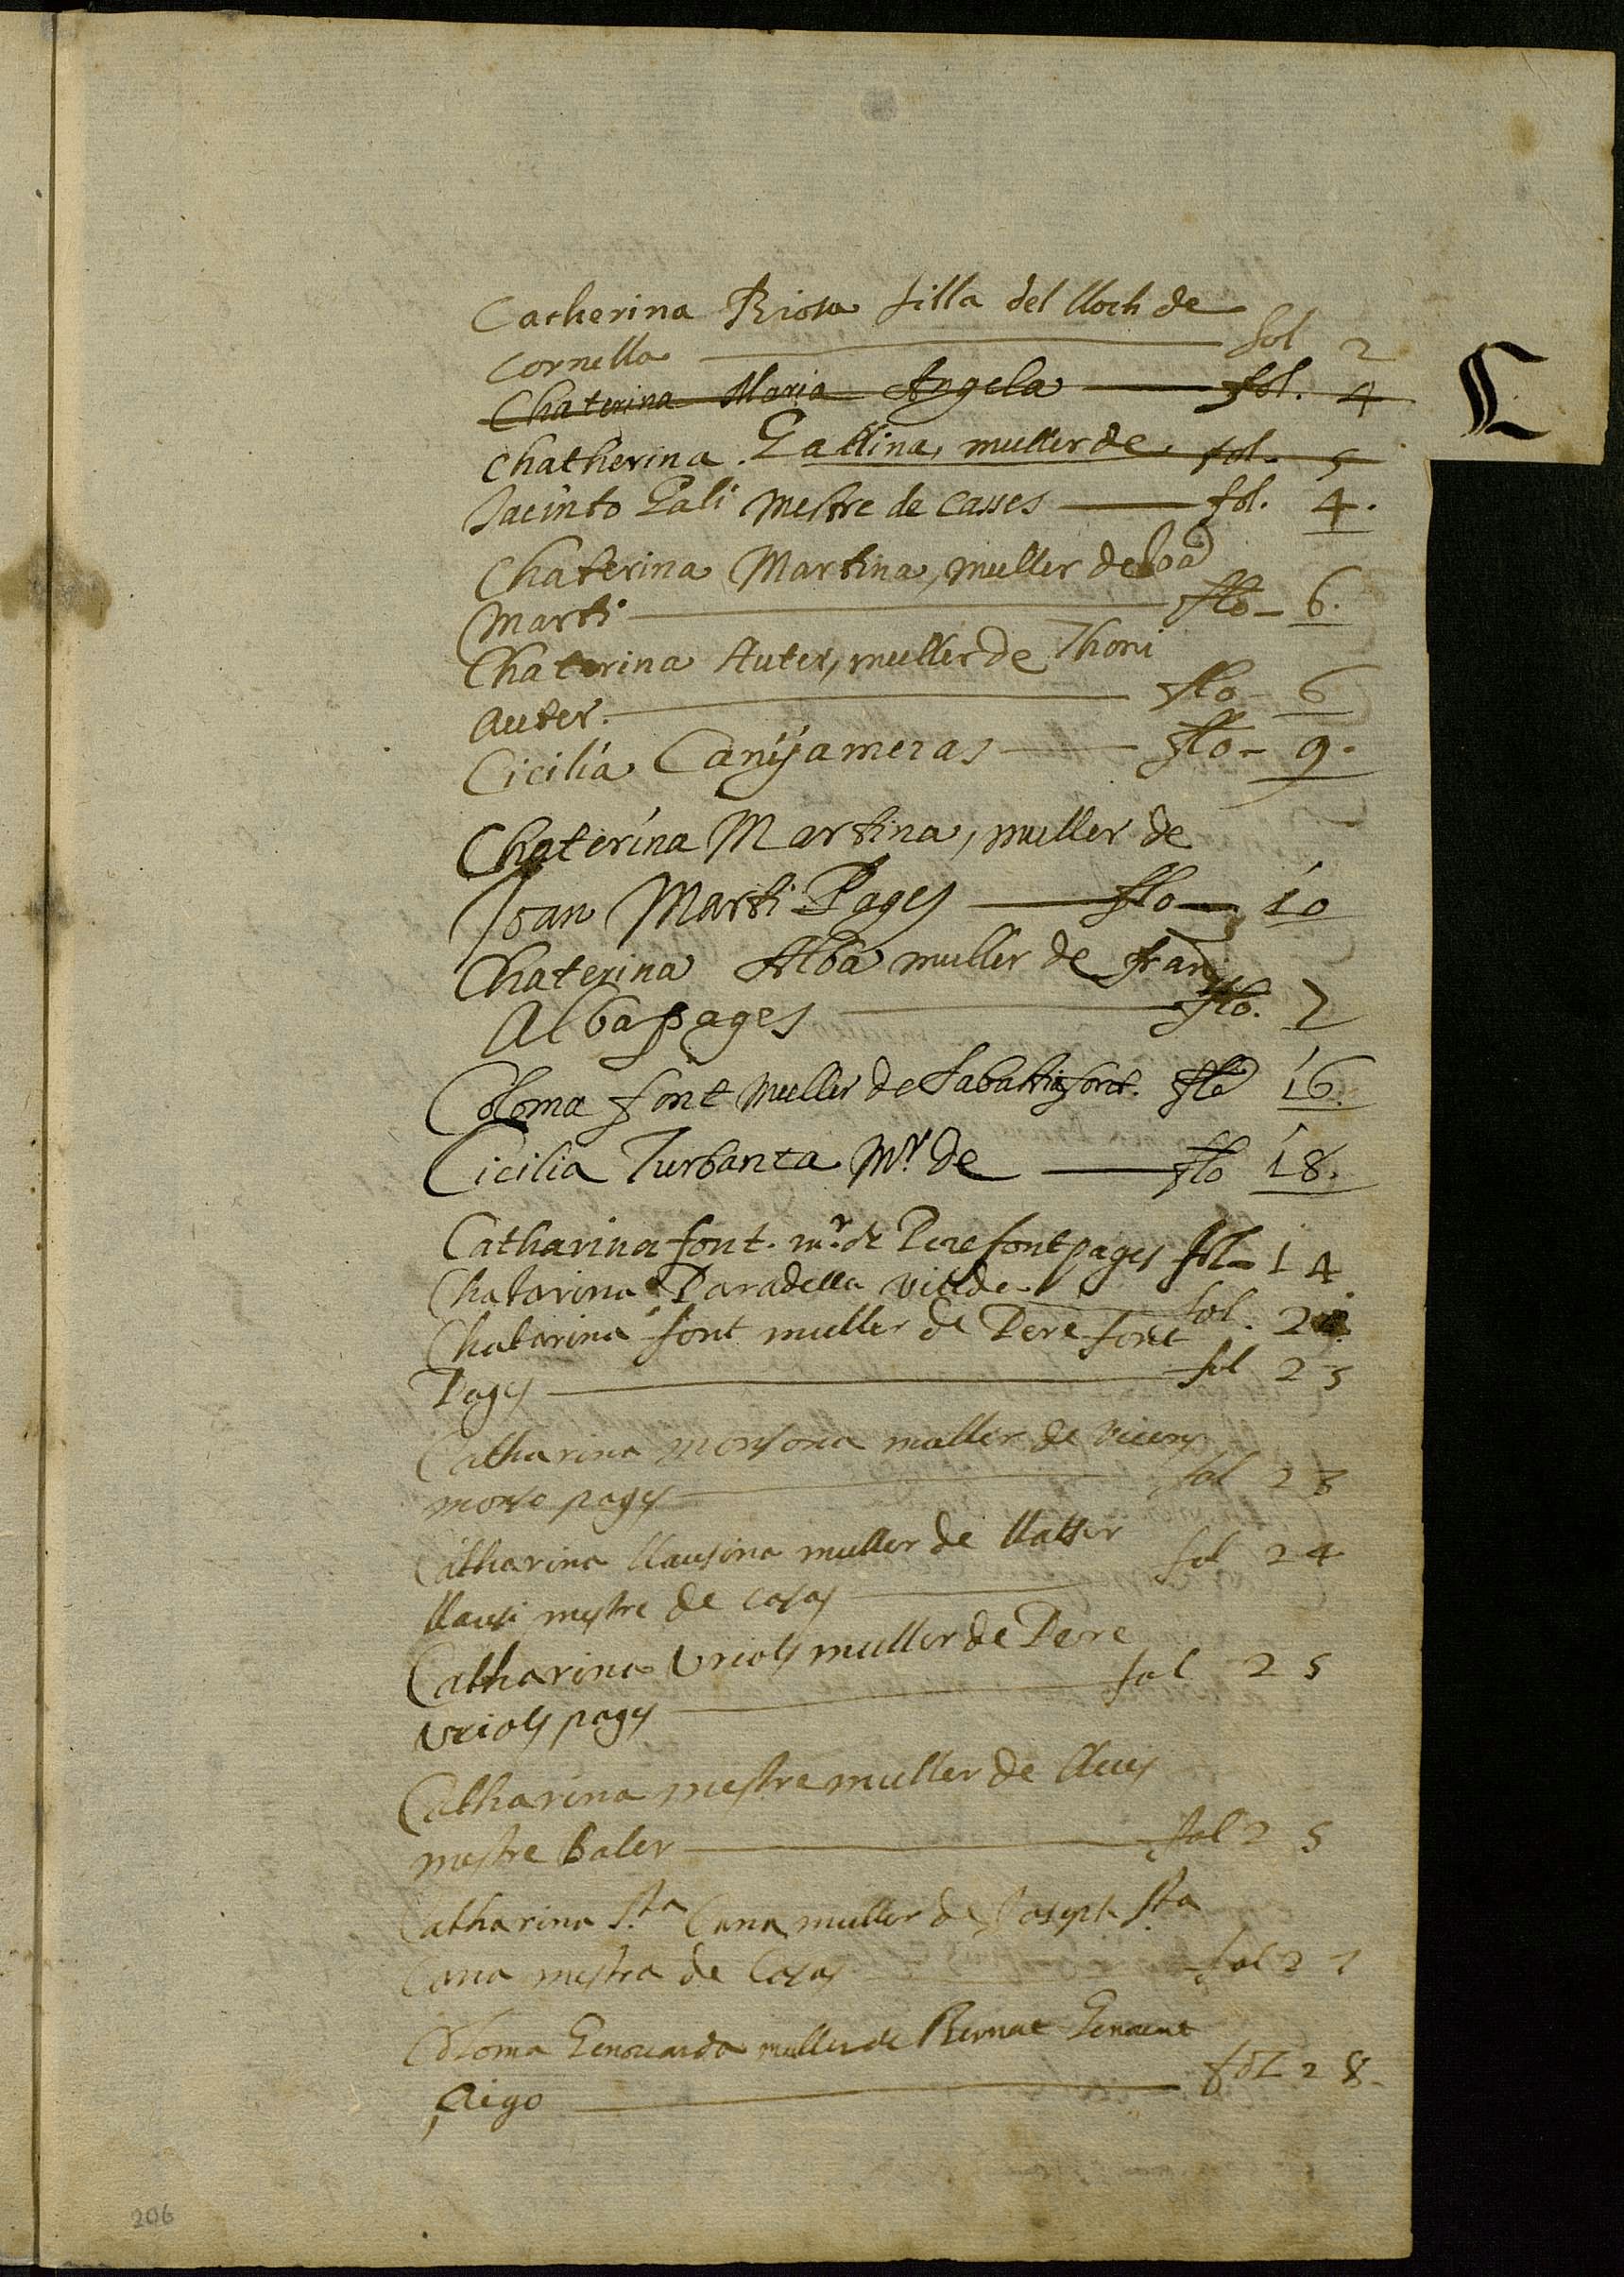 C
Catherina Riosa filla del lloch de
Cornella fol 2
Chaterina Maria Angela fol. 4
Chatherina Gallina, muller de, fol. 5
Jacinto Gali mestre de casses fol. 4.
Chaterina Martina, muller de Joã
Marti flo 6.
Chaterina Auter, muller de Thoni
Auter. flo 6
Cicilia Canyameras flo 9.
Chaterina Martina, muller de
Joan Marti Pages flo 10
Chaterina Alba muller de
Alba pages flo. 7
Coloma font muller de font. flo 16.
Cicilia Turbanta Mr. de flo 18.
Catharina font. mr. de Pere font pages fol 14
Chatarina Paradella viude fol. 2
Chatarina font muller de Pere font
Pages fol 23
Catharina monsona muller de vicens
monso pages fol 23
Catharina llausina muller de llatser fol 24
llausi mestre de casas
Catharina Uriols muller de Pere
Uriols pages fol 25
Catharina mestre muller de lluis
mestre baler fol 25
Catharina Sta Cana muller de Joseph Sta
Cana mestra de Casas fol 27
Coloma muller de Bernat
fol 28.
206